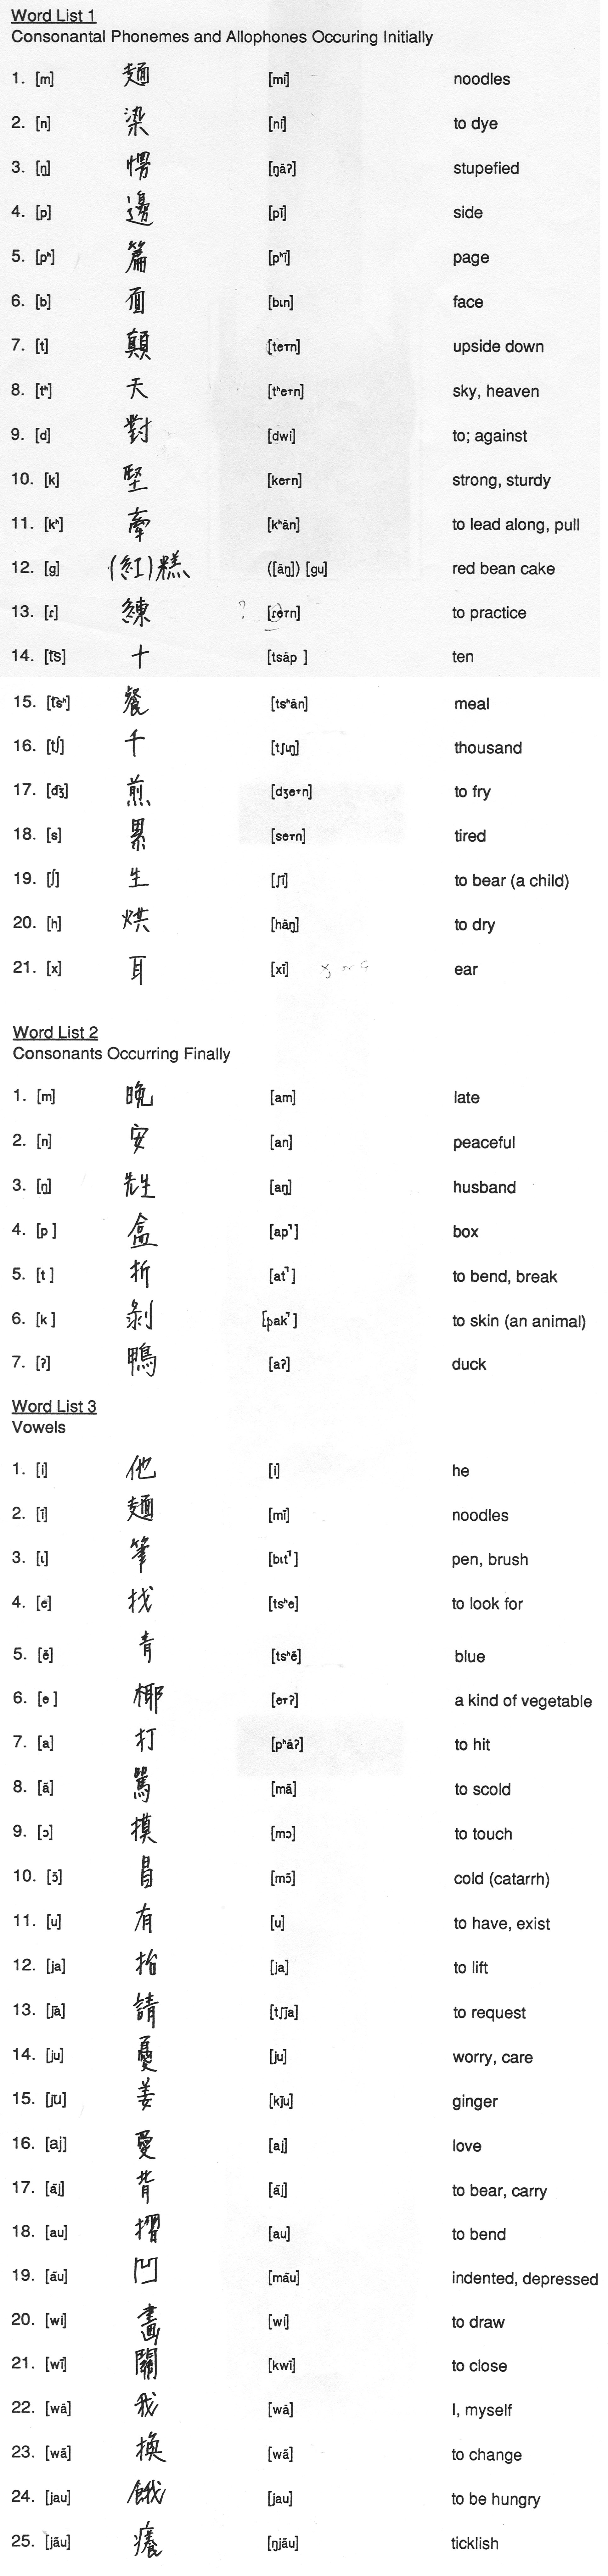 Word List 1
Consonantal Phonemes and Allophones Occuring Initially
1. [m] 麵 [mĩ] noodles
2. [n] 染 [nĩ] to dye
3. [ŋ] 愕 [ŋãʔ] stupefied
4. [p] 邊 [pĩ] side
5. [pʰ] 篇 [pʰĩ] page
6. [b] 面 [bɩn] face
7. [t] 顛 [te┬n] upside down
8. [tʰ] 天 [tʰe┬n] sky, heaven
9. [d] 對 [dwi] to; against
10. [k] 堅 [ke┬n] strong, sturdy
11. [kʰ] 牽 [kʰãn] to lead along, pull
12. [g] (紅)糕 ([ãŋ]) [gu] red bean cake
13. [ɾ] 練 ? [ɾe┬n] to practice
14. [t͡s] 十 [tsãp ] ten
15. [t͡sʰ] 餐 [tsʰãn] meal
16. [tʃ] 千 [tʃɩŋ] thousand
17. [d͡ʒ] 煎 [dʒe┬n] to fry
18. [s] 累 [se┬n] tired
19. [ʃ] 生 [ʃĩ] to bear (a child)
20. [h] 烘 [hãŋ] to dry
21. [x] 耳 [xĩ] ear
Word List 2
Consonants Occurring Finally
1. [m] 晚 [am] late
2. [n] 安 [an] peaceful
3. [ŋ] 先生 [aŋ] husband
4. [p ] 盒 [ap˺] box
5. [t ] 折 [at˺] to bend, break
6. [k ] 剝 [pak˺] to skin (an animal)
7. [ʔ] 鴨 [aʔ] duck
Word List 3
Vowels
1. [i] 他 [i] he
2. [ĩ] 麵 [mĩ] noodles
3. [ɩ] 筆 [bɩt˺] pen, brush
4. [e] 找 [tsʰe] to look for
5. [ẽ] 青 [tsʰẽ] blue
6. [e ] 椰 [e┬ʔ] a kind of vegetable
7. [a] 打 [pʰãʔ] to hit
8. [ã] 罵 [mã] to scold
9. [ɔ] 摸 [mɔ] to touch
10. [ɔ̃] 冒 [mɔ̃] cold (catarrh)
11. [u] 有 [u] to have, exist
12. [ja] 抬 [ja] to lift
13. [j̃ã] 請 [tʃj̃a] to request
14. [ju] 憂 [ju] worry, care
15. [j̃ũ] 姜 [kj̃u] ginger
16. [aj] 愛 [aj] love
17. [ãj] 背 [ãj] to bear, carry
18. [au] 摺 [au] to bend
19. [ãu] 凹 [mãu] indented, depressed
20. [wi] 畫 [wi] to draw
21. [wĩ] 關 [kwĩ] to close
22. [wã] 我 [wã] I, myself
23. [wã] 換 [wã] to change
24. [jau] 餓 [jau] to be hungry
25. [jãu] 癢 [ŋjãu] ticklish